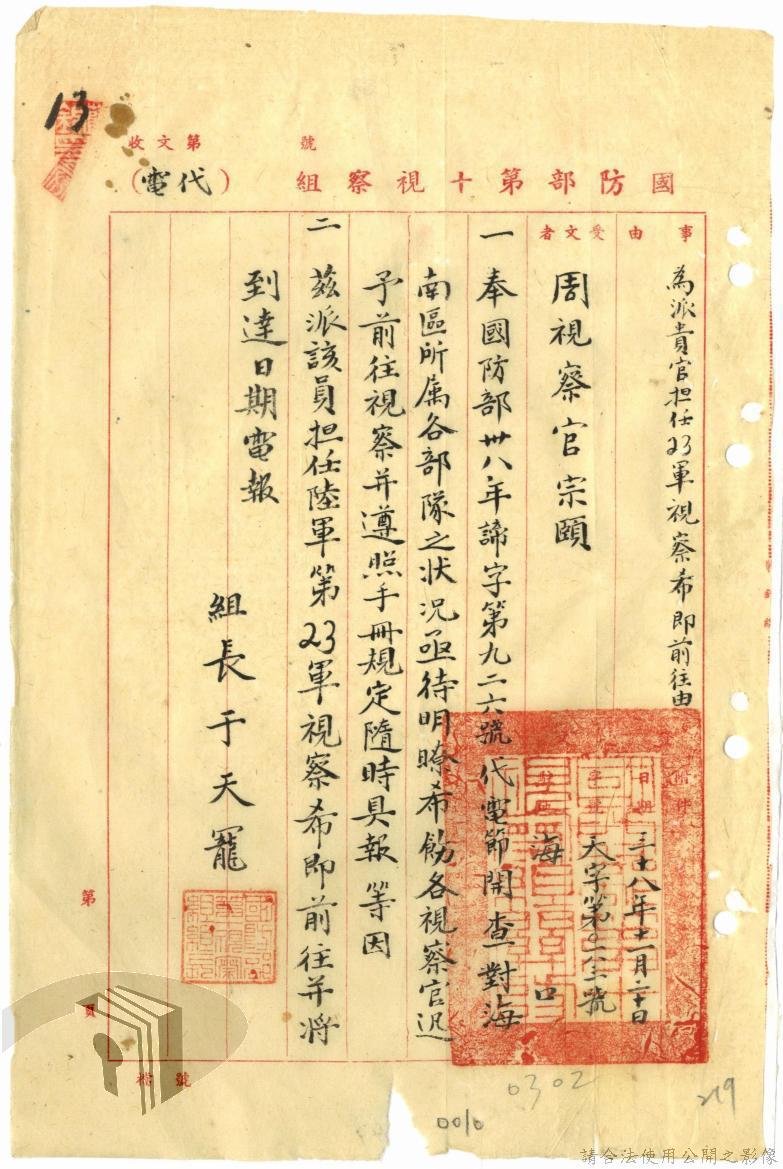 13
收文第 號
國防部第十視察組（代電）
事由 為派貴官担任23軍視察希即前往由
受文者 周視察官宗頤
附件
日期 三十八年十一月二十日
字號 天字第 號
駐地 海口
一 奉國防部卅八年諦字第九二六號代電節開查對海
南區所属各部隊之狀況亟待明瞭希飭各視察官迅
予前往視察并遵照手冊規定隨時具報等因
二 茲派該員担任陸軍第23軍視察希即前往并將
到達日期電報
組長于天寵
第 頁
檔號
0302
0010
219
請合法使用公開之影像